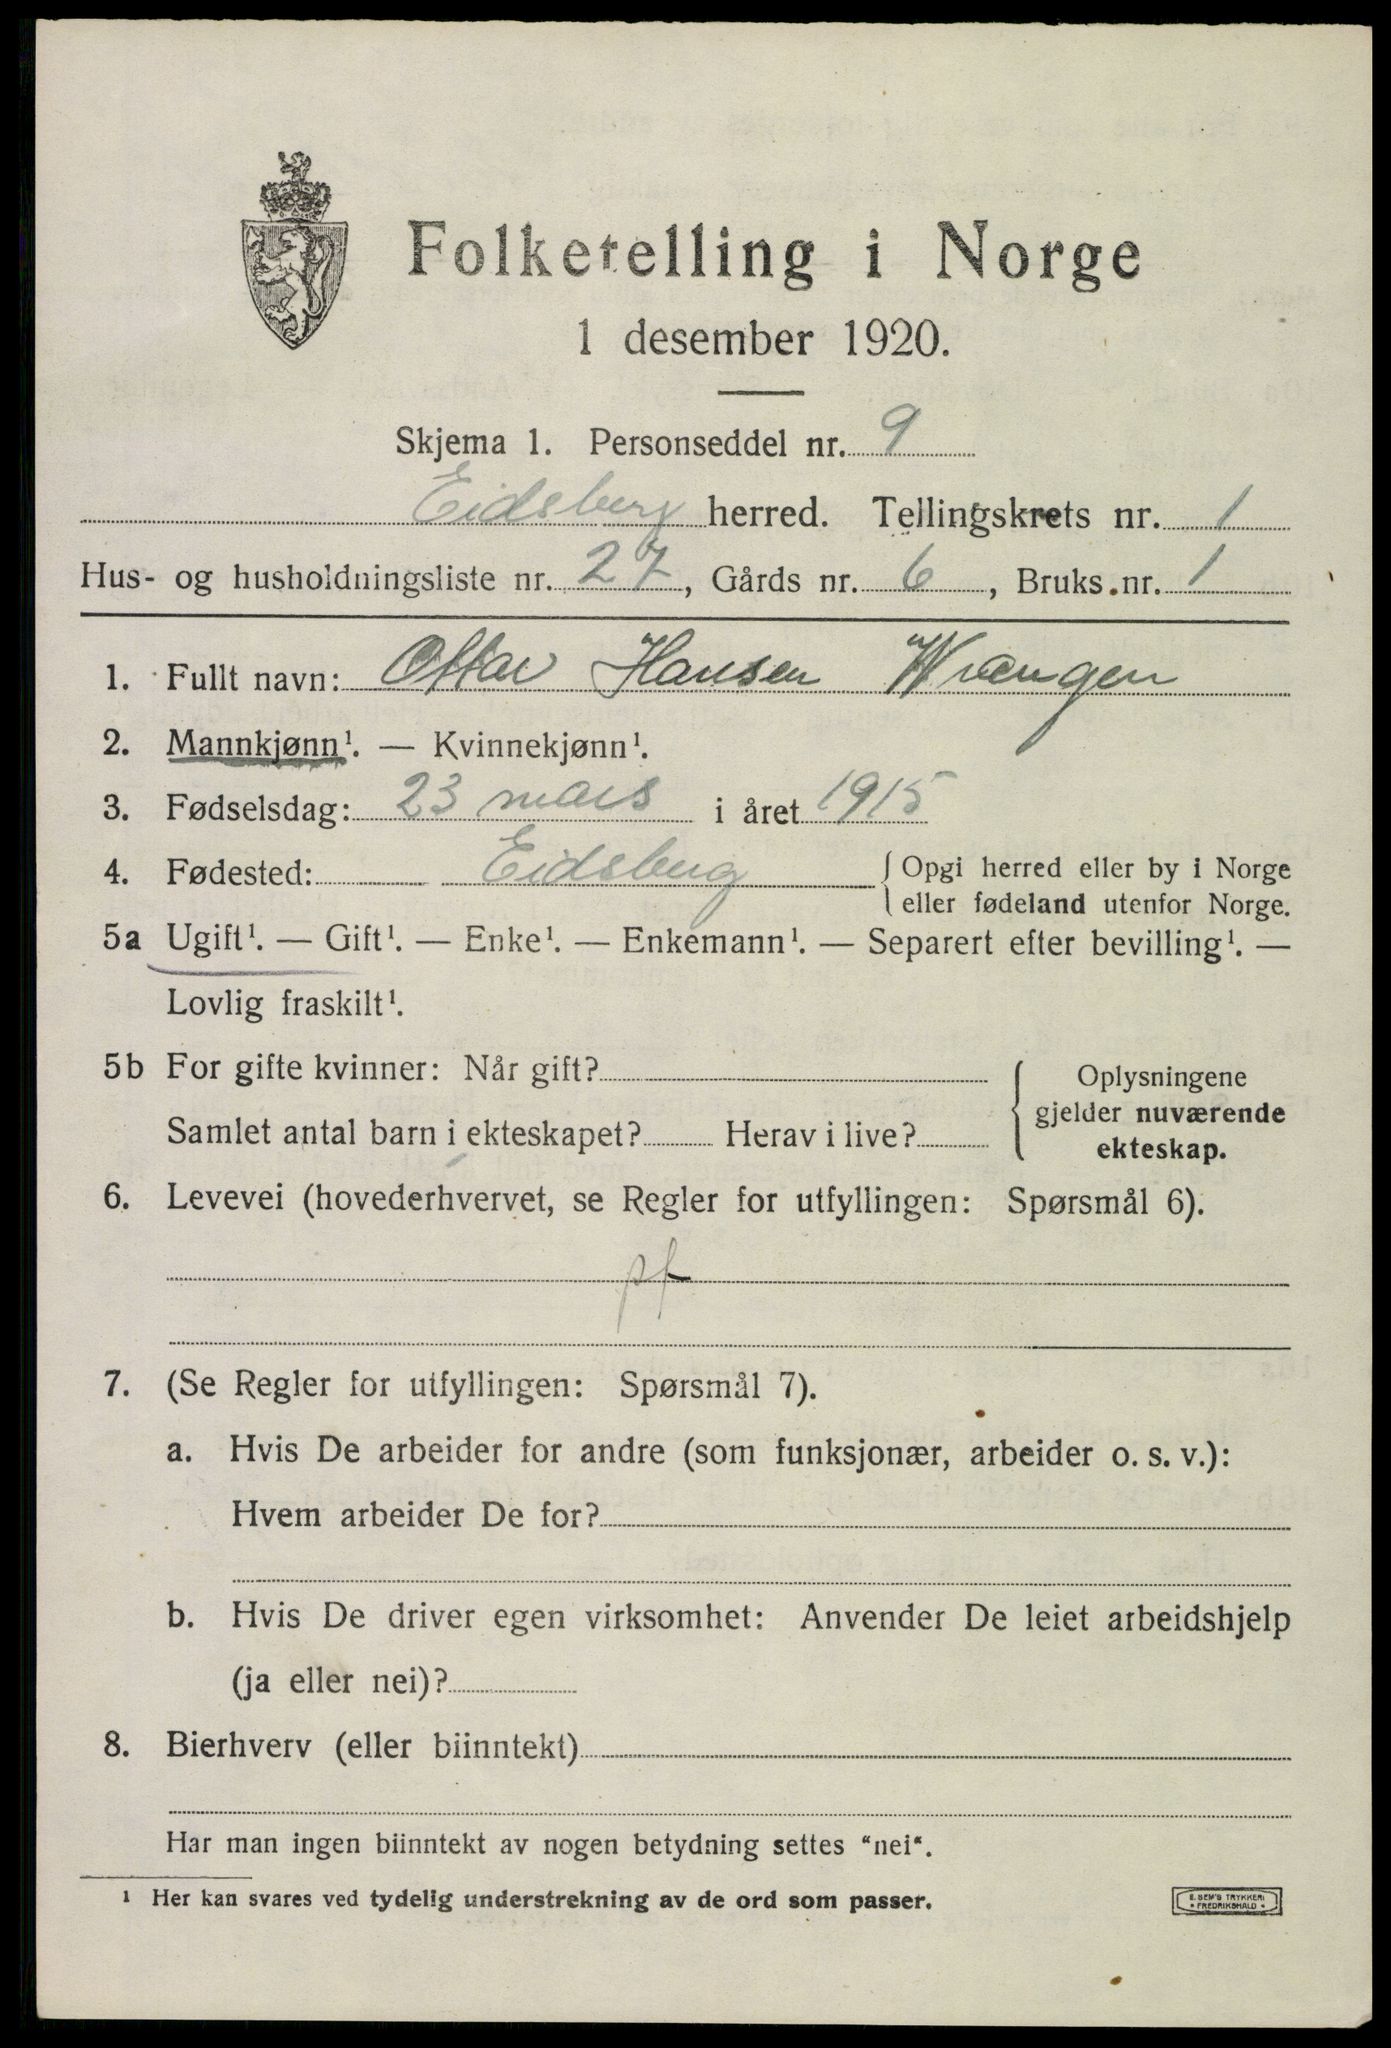 Folketelling i Norge
1 desember 1920.
Skjema 1. Personseddel nr. 9
Eidsberg herred. Tellingskrets nr. 1
Hus- og husholdningsliste nr. 27, Gårds nr. 6, Bruks.nr. 1
1. Fullt navn: Ottar Hansen Wrængen
2. Mannkjønn¹. — Kvinnekjønn¹.
3. Fødselsdag: 23 mars i året 1915
4. Fødested: Eidsberg { Opgi herred eller by i Norge
eller fødeland utenfor Norge.
5a Ugift¹. — Gift¹. — Enke¹. — Enkemann¹. — Separert efter bevilling¹. —
Lovlig fraskilt¹.
5b For gifte kvinner: Når gift?
Samlet antal barn i ekteskapet? Herav i live?
Oplysningene
gjelder nuværende
ekteskap.
6. Levevei (hovederhvervet, se Regler for utfyllingen: Spørsmål 6).
pf
7. (Se Regler for utfyllingen: Spørsmål 7).
a. Hvis De arbeider for andre (som funksjonær, arbeider o. s. v.):
Hvem arbeider De for?
b. Hvis De driver egen virksomhet: Anvender De leiet arbeidshjelp
(ja eller nei)?
8. Bierhverv (eller biinntekt)
Har man ingen biinntekt av nogen betydning settes "nei".
¹ Her kan svares ved tydelig understrekning av de ord som passer.
E. SEM'S TRYKKERI
FREDRIKSHALD